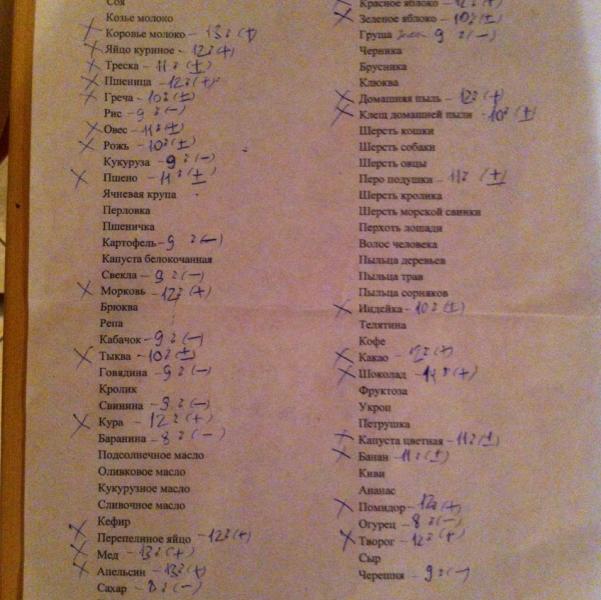 Соя
Козье молоко
Коровье молоко - 13г (+)
Яйцо куриное - 12г (+)
Треска - 11г (±)
Пшеница - 12г (+)
Греча - 10г (±)
Рис - 9г (-)
Овес - 11г (±)
Рожь - 10г (±)
Кукуруза - 9г (-)
Пшено - 11г (±)
Ячневая крупа
Перловка
Пшеничка
Картофель - 9г (-)
Капуста белокочанная
Свекла - 9г (-)
Морковь - 12г (+)
Брюква
Репа
Кабачок - 9г (-)
Тыква - 10г (±)
Говядина - 9г (-)
Кролик
Свинина - 9г (-)
Кура - 12г (+)
Баранина - 8г (-)
Подсолнечное масло
Оливковое масло
Кукурузное масло
Сливочное масло
Кефир
Перепелиное яйцо - 12г (+)
Мед - 13г (+)
Апельсин - 13г (+)
Сахар - 8г (-)
Красное яблоко - 12г (+)
Зеленое яблоко - 10г (±)
Груша 9г (-)
Черника
Брусника
Клюква
Домашняя пыль - 12г (+)
Клещ домашней пыли - 10г (±)
Шерсть кошки
Шерсть собаки
Шерсть овцы
Перо подушки - 11г (±)
Шерсть кролика
Шерсть морской свинки
Перхоть лошади
Волос человека
Пыльца деревьев
Пыльца трав
Пыльца сорняков
Индейка - 10г (±)
Телятина
Кофе
Какао - 12г (+)
Шоколад - (+)
Фруктоза
Укроп
Петрушка
Капуста цветная - 11г (±)
Банан - 11г (±)
Киви
Ананас
Помидор - 12г (+)
Огурец - 8г (-)
Творог - 12г (+)
Сыр
Черешня - 9г (-)